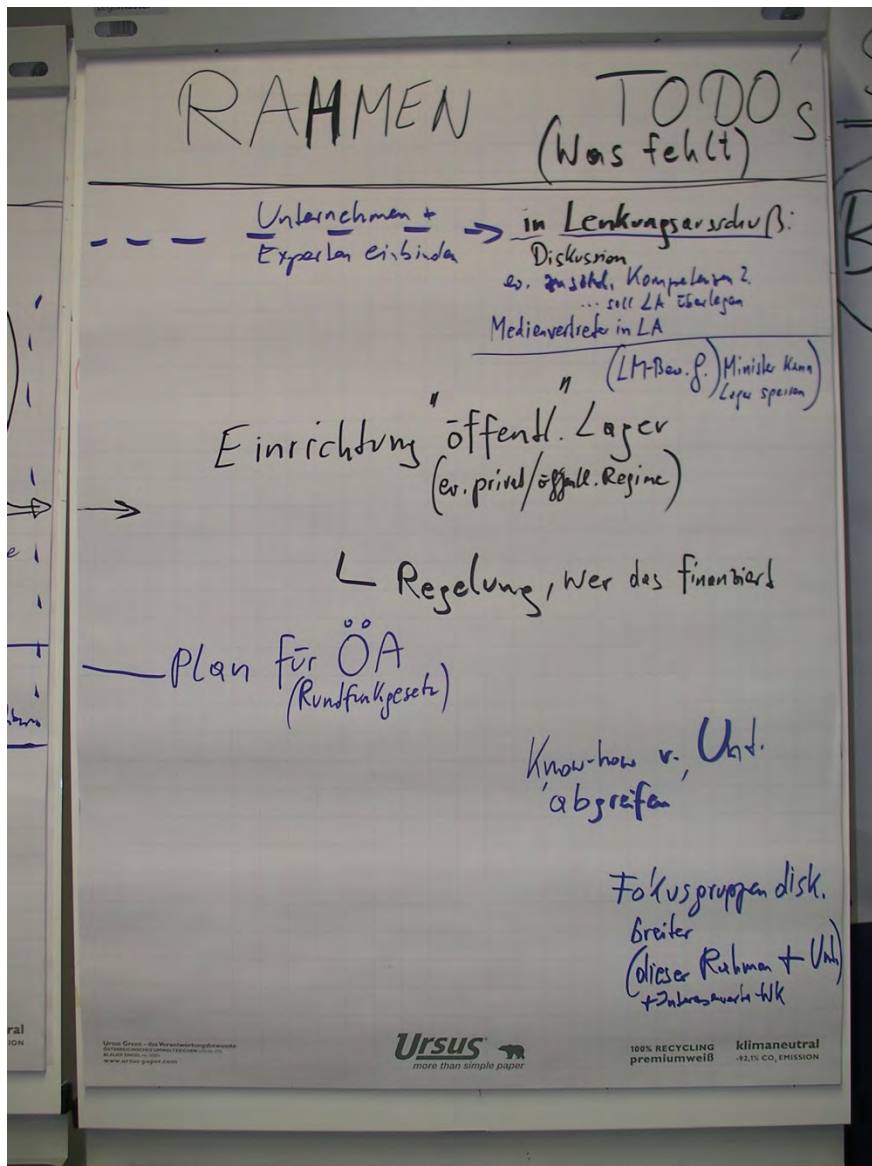 RAHMEN TODO's
(Was fehlt)
Unternehmen +
Experten einbinden
in Lenkungsausschuß:
Diskussion
ev. zusätzl. Kompetenzen?
... soll LA überlegen
Medienvertreter in LA
(LM-Bew.g.) Minister kann
Lager sperren)
Einrichtung "öffentl." Lager
(ev. privat/öffentl. Regime)
Regelung, wer das finanziert
Plan für ÖA
(Rundfunkgesetz)
Know-how v. Unt.
"abgreifen"
Fokusgruppendisk.
breiter
(dieser Rahmen + Unt.)
Ursus Green - das Verantwortungsbewusste
ÖSTERREICHISCHES UMWELTZEICHEN
BLAUER ENGEL
www.ursus-paper.com
Ursus
more than simple paper
100% RECYCLING
premiumweiß
klimaneutral
-92,1% CO₂ EMISSION